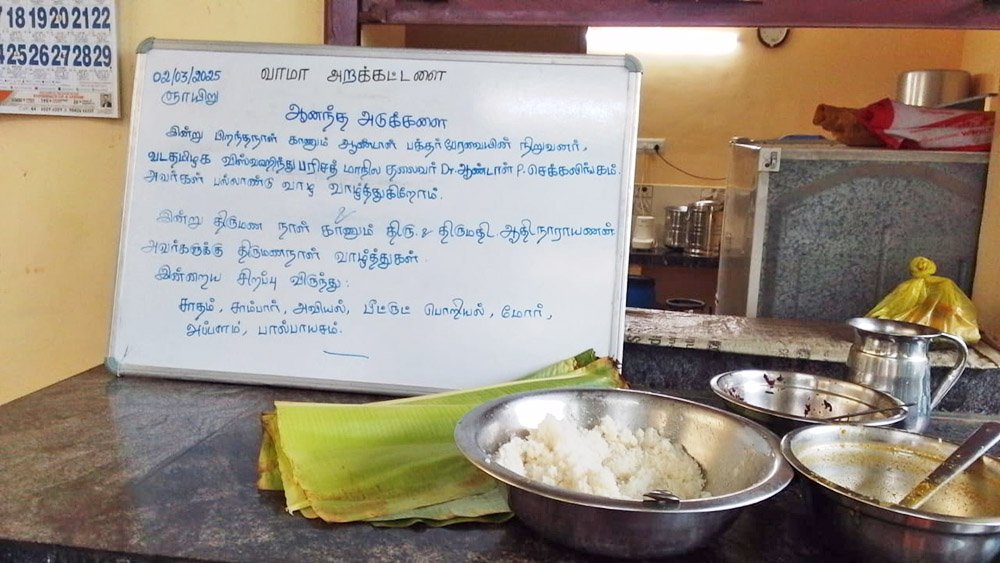 18 19 20 21 22
25 26 27 28 29
02/03/2025
ஞாயிறு
வாமா அறக்கட்டளை
ஆனந்த அடுக்களை
இன்று பிறந்தநாள் காணும் ஆண்டாள் பக்தர் பேரவையின் நிறுவனர்,
வடதமிழக விஸ்வஹிந்து பரிசத் மாநில தலைவர் Dr ஆண்டாள் P. சொக்கலிங்கம்.
அவர்கள் பல்லாண்டு வாழ வாழ்த்துகிறோம்.
இன்று திருமண நாள் காணும் திரு & திருமதி. ஆதிநாராயணன்
அவர்களுக்கு திருமணநாள் வாழ்த்துகள்.
இன்றைய சிறப்பு விருந்து:
சாதம், சாம்பார், அவியல், பீட்ரூட் பொறியல், மோர்,
அப்பளம், பால்பாயசம்.